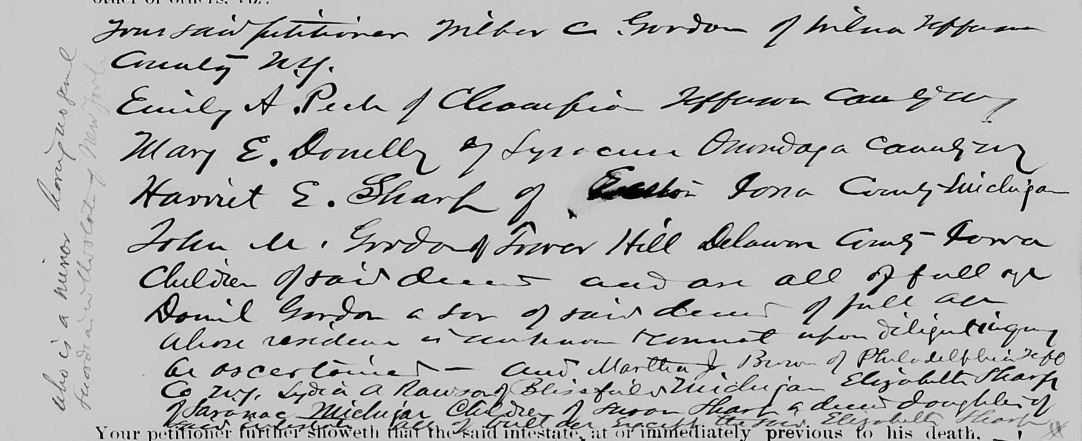 other or others, viz:
Your said petitioner Wilber C. Gordon of Wilna Jefferson
County N.Y.
Emily A. Peck of Champion Jefferson County NY
Mary E. Donelly of Syracuse Onondaga County NY
Harriet E. Sharp of Easton Iona County Michigan
John M. Gordon of Tower Hill Delaware County Iowa
Children of said deceased and are all of full age
Daniel Gordon a son of said deceased of full age
whose residence is unknown & cannot upon diligent inquiry
be ascertained — and Martha J Brown of Philadelphia Jeff
Co N.Y. Lydia A Rawson of Blissfield Michigan Elizabeth Sharp
of Saranac Michigan Children of Sharp a deceased daughter of
said intestate all of full age except the said Elizabeth Sharp
who is a minor having no general
guardian in the State of New York
Your petitioner further showeth that the said intestate, at or immediately previous to his death,